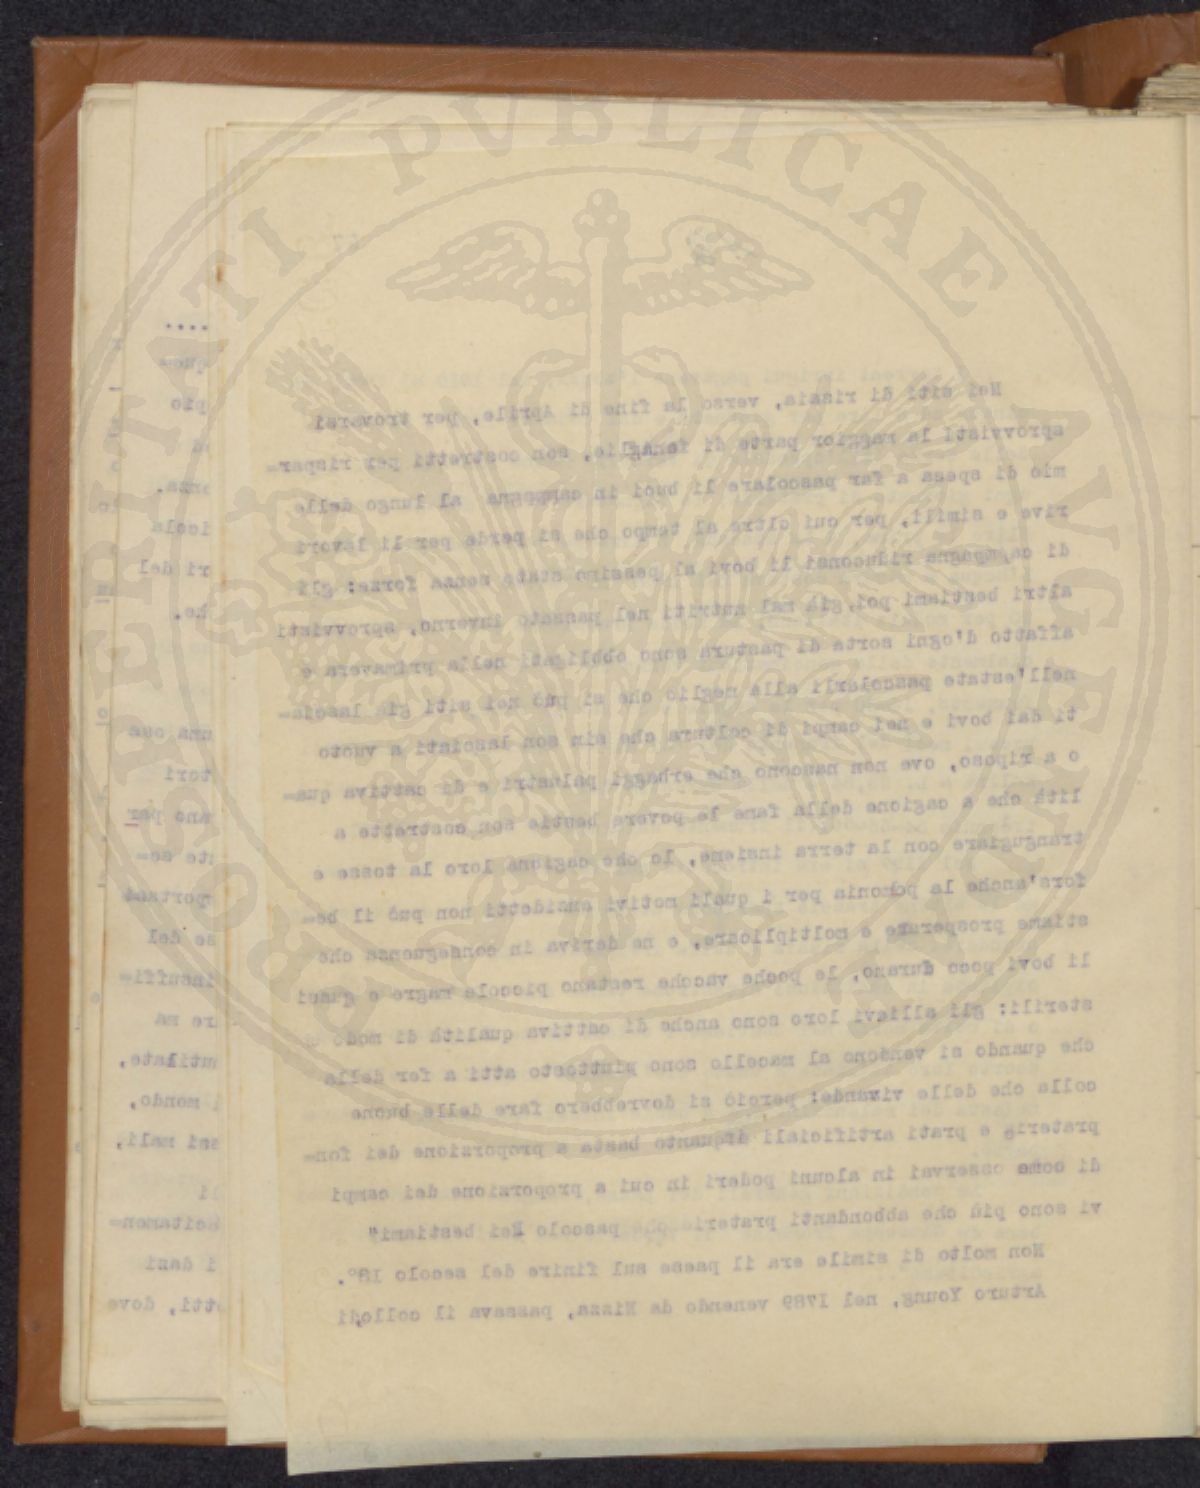 PROSPERITATI PVBLICAE AVGENDAE
Nei siti di risaia, verso la fine di Aprile, per trovarsi
sprovvisti la maggior parte di famaglie, son costretti per rispar=
mio di spesa a far pascolare li buoi in campagna al lungo delle
rive e simili, per cui oltre al tempo che si perde per li lavori
di campagna riduconsi li bovi al pessimo stato senza forze: gli
altri bestiami poi, già mal nutriti nel passato inverno, sprovvisti
affatto d'ogni sorta di pastura sono obbligati nella primavera e
nell'estate pascolarli alla meglio che si può nei siti già lascia=
ti dai bovi e nei campi di coltura che sin son lasciati a vuoto
o a riposo, ove non nascono che erbaggi palustri e di cattiva qua=
lità che a cagione della fame le povere bestie son costrette a
trangugiare con la terra insieme, lo che cagiona loro la tosse e
fors'anche la pomonia per i quali motivi ansidetti non può il be=
stiame prosperare e moltiplicare, e ne deriva in conseguenza che
li bovi poco durano, le poche vacche restano piccole magre e quasi
sterili: gli allievi loro sono anche di cattiva qualità di modo
che quando si vendono al macello sono piuttosto atti a far della
colla che delle vivande: perciò si dovrebbero fare delle buone
praterie e prati artificiali quanto basta a proporzione dei fon=
di come osservai in alcuni poderi in cui a proporzione dei campi
vi sono più che abbondanti praterie pascolo dei bestiami"
Non molto di simile era il paese sul finire del secolo 18°.
Arturo Young, nel 1789 venendo da Nizza, passava il colle di
....
que=
pio
orza.
icola
ri del
he.
una cosa
tori
uno per
nte se=
se del
insuffi=
are ma
mutilate,
mondo,
ani mali,
li
i dazi
otti, dove